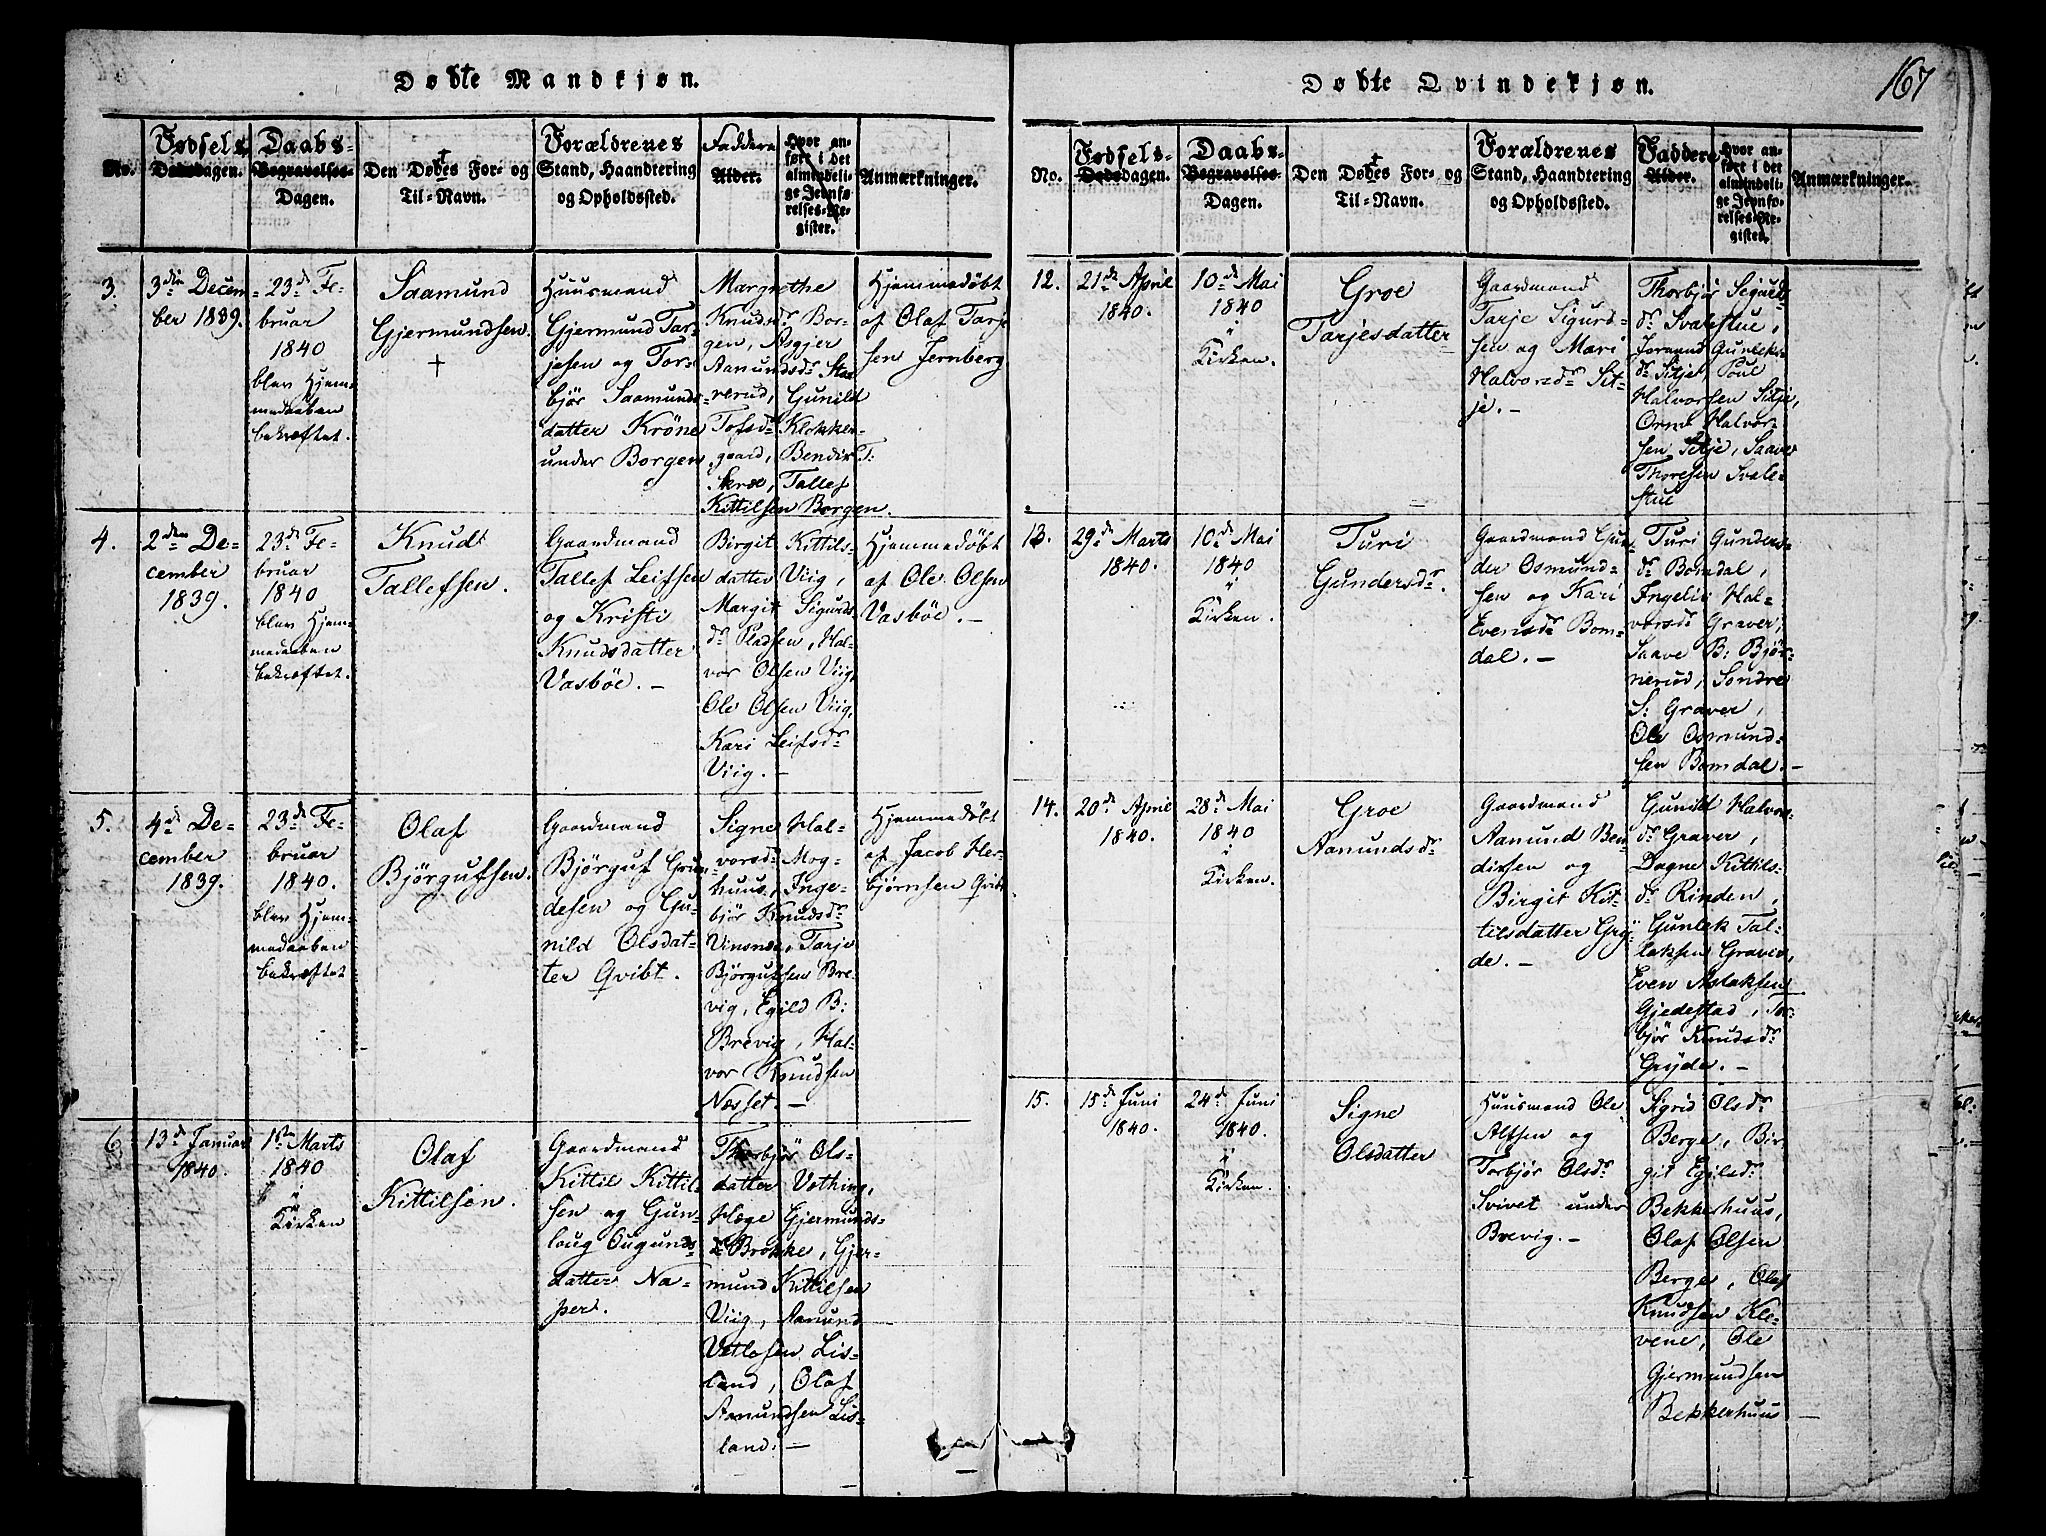 Døbte Mandkjøn.
No.
Fødsels
Dødsdagen.
Daabs-
Begravelses-
Dagen.
Den Døbtes For- og
Til-Navn.
Forældrenes
Stand, Haandtering
og Opholdssted.
Faddere
Alder.
Hvor an-
ført i det
almindeli-
ge Jevnfø-
relses-Re-
gister.
Anmærkninger.
3.
3die Decem-
ber 1839.
23de Fe-
bruar
1840
blev Hjem-
medaaben
bekræftet.
Saamund
Gjermundsen.
+
Huusmand
Gjermund Tar-
jesen og Tor-
bjør Saamunds-
datter Kröne
under Borgen
Margrethe
Knudsdr Bor-
gen, Asgjer
Aamundsdr Sta-
verud, Gunild
Tofsdr Klokker-
gaard, Bendix T:
Skree, Tallef
Kittilsen Borgen.
Hjemmedøbt
af Olaf Tarje
sen Jernberg
4.
2den De-
cember
1839.
23de Fe-
bruar
1840
blev Hjem-
medaaben
bekræftet.
Knudt
Tallefsen.
Gaardmand
Tallef Leifsen
og Kristi
Knudsdatter
Vasböe. —
Birgit Kittils-
datter Viig,
Margit Sigurds
dr Pladsen, Hal-
vor Olsen Viig,
Ole Olsen Viig,
Kari Leifsdr
Viig. —
Hjemmedøbt
af Ole Olsen
Vasböe. —
5.
4de De-
cember
1839.
23de Fe-
bruar
1840.
blev Hjem-
medaaben
bekræftet
Olaf
Björgufsen.
Gaardmand
Björguf Grun-
desen og Gu-
nild Olsdat-
ter Qvibt.
Signe Hal-
vorsdr Mog-
huus, Inge-
björ Knudsdr
Vinsnes, Tarje
Björgufsen Bre-
vig, Egild B:
Brevig, Hal-
vor Knudsen
Næsset. —
Hjemmedøbt
af Jacob Her-
björnsen Qvibt
6.
13de Januar
1840.
1ste Marts
1840
i
Kirken
Olaf
Kittilsen.
Gaardmand
Kittil Kittil-
sen og Gun-
loug Ougunds-
datter Na-
per.
Thorbjör Ols-
datter Vothing,
Hæge Gjermunds-
dr Brokke, Gjer-
mund Kittilsen
Viig, Aamund
Vetlesen Lis-
land, Olaf
Aamundsen Lis-
land. —
Døbte Qvindekjøn.
167
No.
Fødsels-
Dødsdagen.
Daabs-
Begravelses-
Dagen.
Den Døbtes For- og
Til-Navn.
Forældrenes
Stand, Haandtering
og Opholdssted.
Faddere
Alder.
Hvor an-
ført i det
almindeli-
ge Jevnfø-
relses-Re-
gister.
Anmærkninger.
12.
21de April
1840.
10de Mai
1840
i
Kirken.
Groe
Tarjesdatter
Gaardmand
Tarje Sigurd-
sen og Mari
Halvorsdr Sit-
je. —
Thorbjör Sigurds
dr Svalestue,
Joraand Gunleks-
dr Sitje, Poul
Halvorsen Sitje,
Orm Halvor-
sen Sitje, Saave
Thoresen Svale-
stue
13.
29de Marts
1840.
10de Mai
1840
i
Kirken.
Turi
Gundersdr.
Gaardmand Gun-
der Osmund-
sen og Kari
Evensdr Bom-
dal. —
Turi Gunders-
dr Bomdal,
Ingeliv Hal-
vorsdr Graver,
Saave B: Björ-
nerud, Sondre
S: Graver,
Ole Osmund-
sen Bomdal. —
14.
20de April
1840.
28de Mai
1840
i
Kirken.
Groe
Aamundsdr
Gaardmand
Aamund Ben-
dixsen og
Birgit Kit-
tilsdatter Gry-
de. —
Gunild Halvors-
dr Graver,
Dagne Kittils-
dr Rinden,
Gunlek Tal-
leksen Graver,
Even Aslaksen
Gjedestad, Tor-
björ Knudsdr
Gryde. —
15.
15de Juni
1840.
24de Juni
1840.
i
Kirken.
Signe
Olsdatter
Huusmand Ole
Alfsen og
Torbjör Olsdr
Svivet under
Brevig. —
Sigrid Olsdr
Berge, Bir-
git Egilsdr
Bekkerhuus,
Olaf Olsen
Berge, Olaf
Knudsen Kle-
vene, Ole
Gjermundsen
Bekkerhuus —